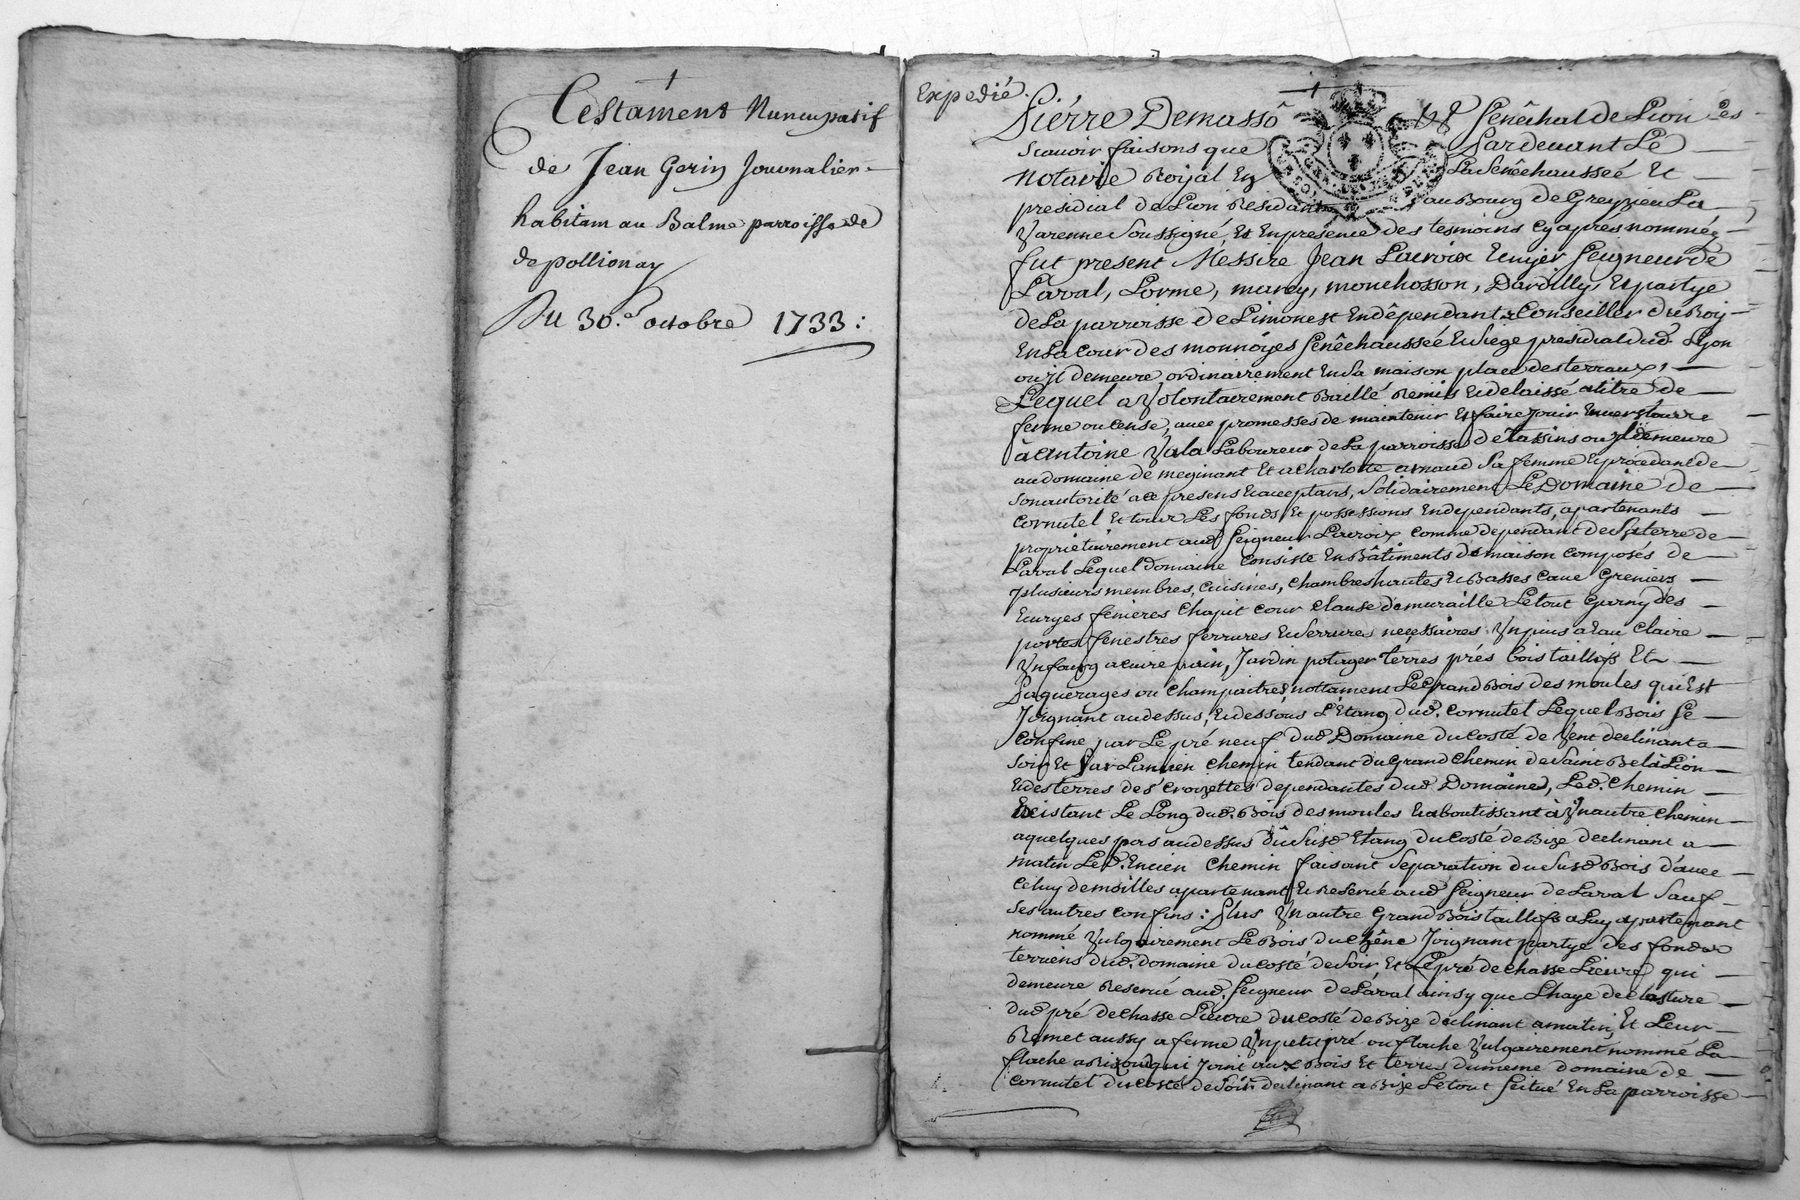 Testament Nuncupatif
de Jean Gerin Journalier
habitant au Balme parroisse de
de pollionay
Du 30.e octobre 1733 :
Expedié.
Pierre Demasso Senêchal de Lion
scavoir faisons que Pardevant Le
notaire Roÿal En La Senêchausseé Et
presidial de Lion Residant au Bourg de Greyzieu La
Varenne soussigné, Et En presence des tesmoins cy après nommés
fut present Messire Jean Lacroix Ecuyer Seigneur de
Laval, Lorme, marcy, monchosson, Dardilly, Et partye
de La parroisse de Limonest En dêpendant, Conseiller du Roy
En La Cour des monnoyes Senêchausseé Et siege presidial dud. Lyon
ou Jl demeure ordinairement En sa maison place des terreaux,
Lequel a Volontairement Baillé Remis Et delaissé a titre de
ferme ou cense, avec promesses de maintenir Et faire jouir Envers tous
à antoine Vala Laboureur de La parroisse de tassins ou Jl demeure
au domaine de meginant Et a charlotte arnaud sa femme Et procedant de
son autorité a ce presens Et acceptans, solidairement Le Domaine de
Cornutel Et tous Les fonds Et possessions En dependants, apartenants
proprietairement aud. Seigneur Lacroix comme dependant de sa terre de
Laval Lequel domaine Consiste En Bâtiments de maison composés de
plusieurs membres, cuisines, chambres hautes Et Basses cave Greniers
Ecuryes fenieres Chapit cour clause de muraille Le tout Garny des
portes fenestres ferrures Et serrures neçessaires Vn puis a Eau claire
Vn fourg a cuire pain, Jardin potager terres prés bois taillifs Et
Paquerages ou champaitres nottament Le Grand Bois des moules qui Est
Joignant au dessus, Et dessous L'Etang dud. Cornutel Lequel Bois se
confine par Le pré neuf dud. Domaine du costé de Vent declinant a
soir Et Par L'ancien chemin tendant du Grand Chemin de Saint Bel à Lion
Et des terres des Croizettes dependantes dud. Domaine, Led. Chemin
Existant Le Long dud. Bois des moules Et aboutissant à Vn autre chemin
a quelques pas au dessus dû susd. Etang du costé de Bize declinant a
matin Led. Encien chemin faisant separation du susd. Bois d'avec
celuy de moilles apartenant Et Reservé aud. Seigneur de Laval sauf
ses autres confins : Plus Vn autre Grand Bois taillifs a Luy apartenant
nommé Vulgairement Le Bois du chêne Joignant partye des fonds
terriens dud. domaine du costé de soir, Et Le pré de chasse Lievre qui
demeure Reservé aud. Seigneur de Laval ainsy que L'haye de closture
dud. pré de chasse Lievre du costé de Bize declinant a matin, Et Leur
Remet aussy a ferme Vn petit pré ou flache Vulgairement nommé La
flache qui Joint aux Bois Et terres du meme domaine de
Cornutel du costé de soir declinant a Bize Le tout scitué En La parroisse